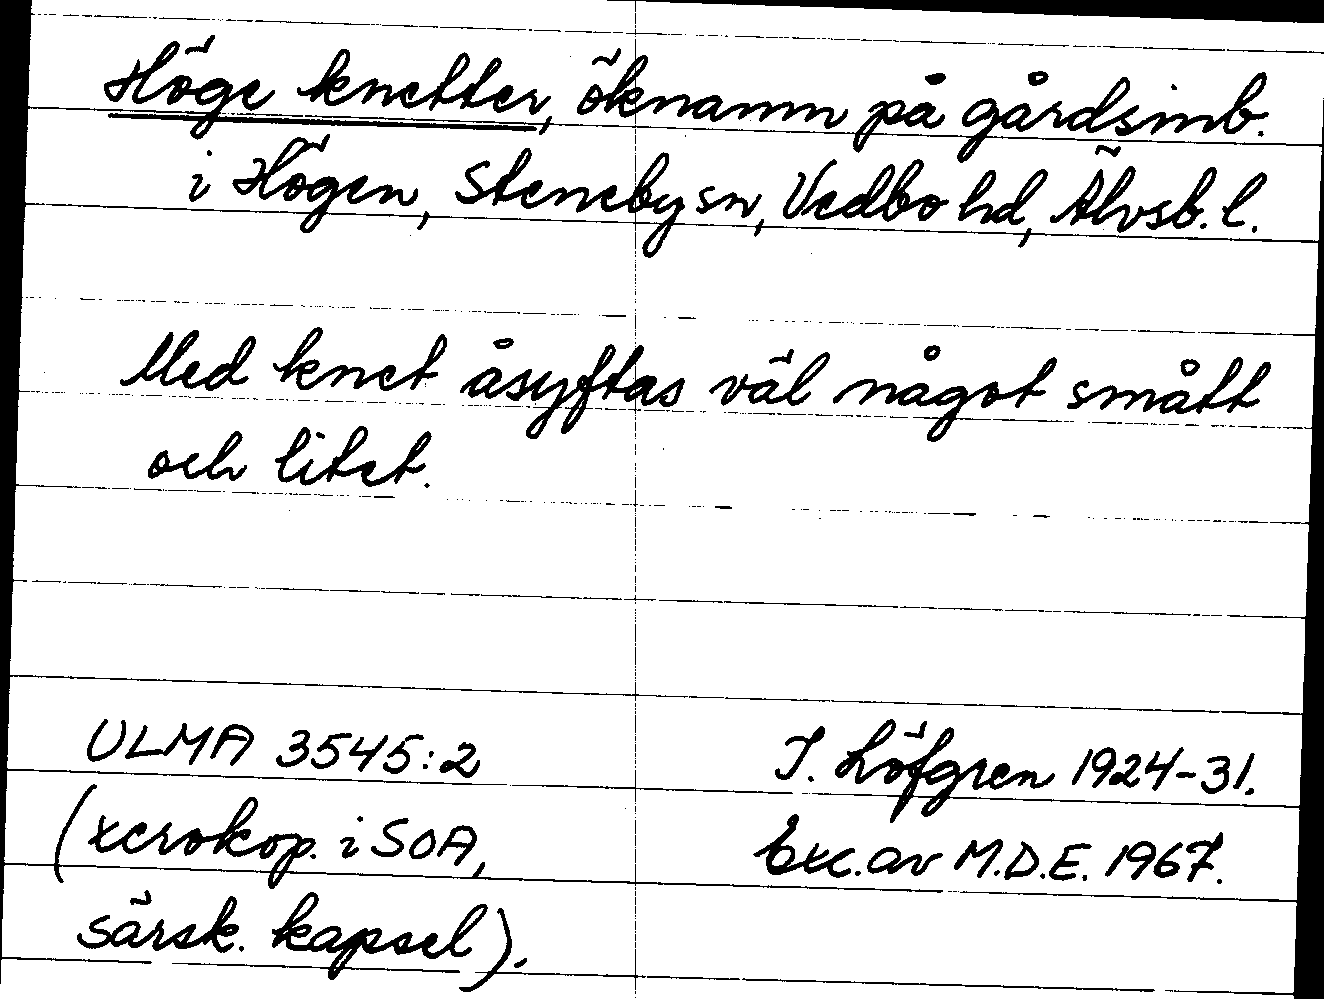 Höge knetter, öknamn på gårdsinb.
i Högen, Steneby sn, Vedbo hd, Älvsb. l.
Med knet åsyftas väl något smått
och litet.
ULMA 3545:2
(xerokop. i SOA,
särsk. kapsel).
J. Löfgren 1924-31.
Exc. av M.D.E. 1967.